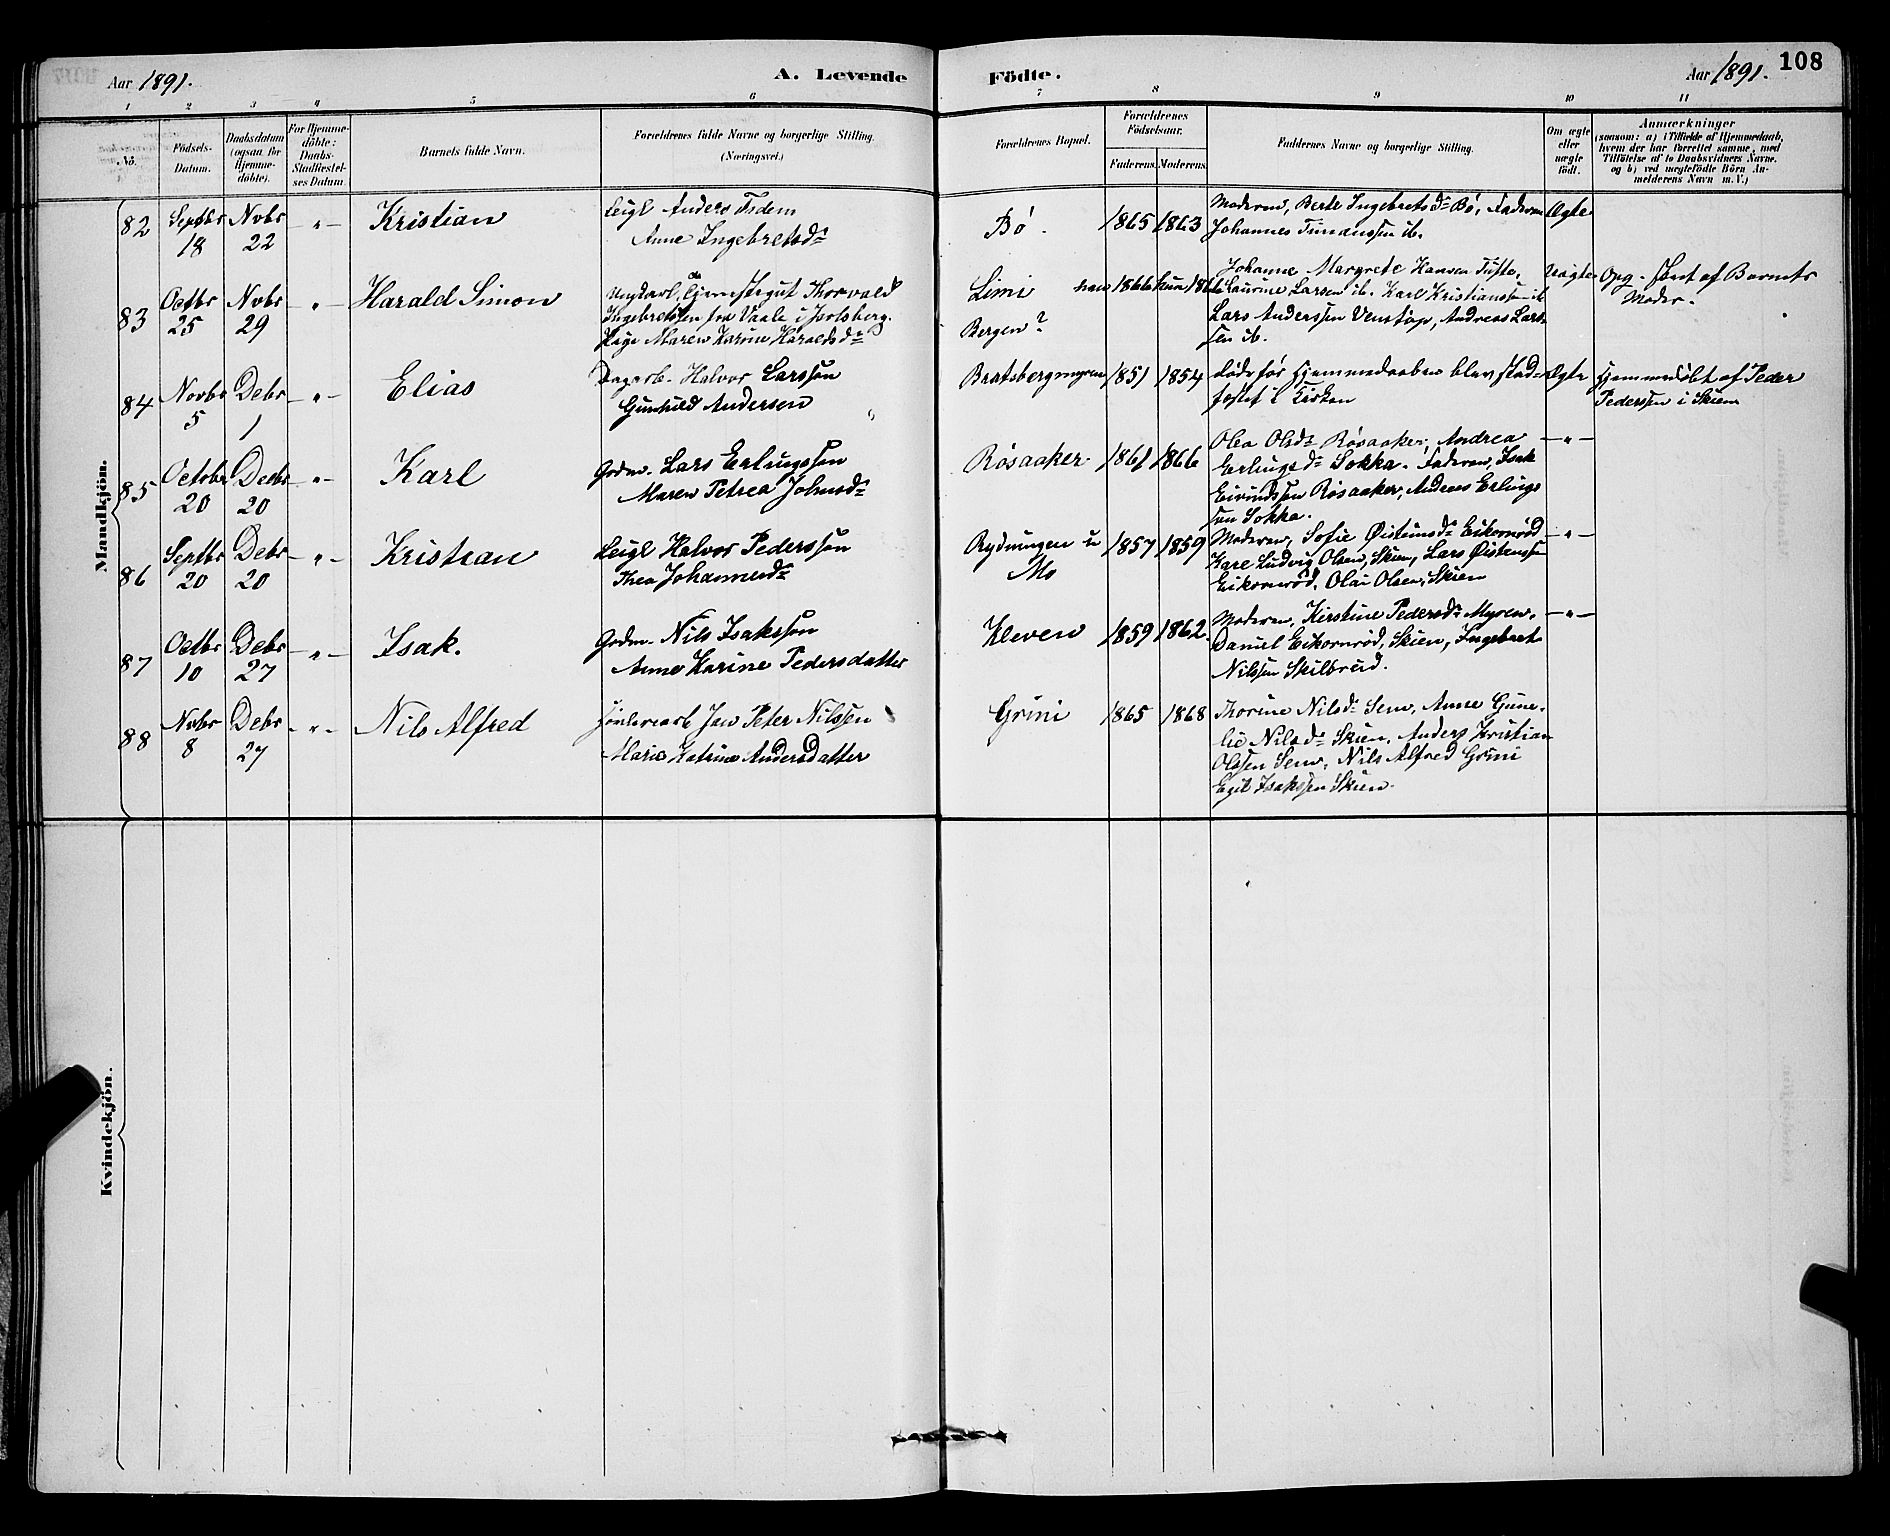 Aar 1891.
A. Levende
Födte.
Aar 1891.
108
1 2 3 4 5 6 7 8 9 10 11
No.
Födsels-
Datum.
Daabsdatum
(ogsaa for
Hjemme-
döbte).
For Hjemme-
döbte:
Daabs-
Stadfæstel-
ses Datum.
Barnets fulde Navn.
Forældrenes fulde Navne og borgerlige Stilling.
(Næringsvei.)
Forældrenes Bopæl.
Forældrenes
Födselsaar.
Faderens. Moderens.
Faddernes Navne og borgerlige Stilling.
Om ægte
eller
uægte
født.
Anmærkninger
(saasom: a) i Tilfælde af Hjemmedaab,
hvem der har forrettet samme, med
Tilföielse af to Daabsvidners Navne.
og b) ved uægtefödte Börn An-
melderens Navn m. V.)
Mandkjön.
82
Septbr
18
Nvbr
22
-"-
Kristian
Leigl Anders
Anne Ingebretsdr
Bö.
1865 1863
Moderen, Berte Ingebretsdr Bö, Faderen
Johannes ib.
Ægte
83
Octbr
25
Nvbr
29
"
Harald Simon
Ungkarl, Thorvald
Ingebretssen fra Vaale i Jarlsberg.
Pige Maren Karine Haraldsdr
Limi
Bergen?
han 1866 hun 1866
Johanne Margrete Hansen Tufte,
Laurine Larsen ib. Karl Kristianssen ib
Lars Anderssen Venstøp, Andreas Lars-
sen ib.
Uægte
Opg. som først af Barnets
Moder.
84
Novbr
5
Debr
1
-"-
Elias
Dagarb. Halvor Larssen
Gunhild Andersen
Bratsbergmyren
1851 1854
døde før Hjemmedaaben blev stad-
fæstet i Kirken
Ægte
Hjemmedøbt af Peder
Pederssen i Skien
85
Octobr
20
Decbr
20
-"-
Karl
Gdm. Lars Erlingssen
Maren Petrea Johnsdr
Røsaaker
1861 1866
Olea Olsdr Røsaaker, Andrea
Erlingsdr Sokka. Faderen, Isak
Eivindssen Røsaaker, Andreas Erlings
sen Sokka.
-"-
86
Septbr
20
Debr
20
-"-
Kristian
Leigl Halvor Pederssen
Thea Johannesdr
Rydningen u
Mo
1857 1859
Moderen, Sofie Øistensdr Eikornrød
Karl Ludvig Olsen, Skien, Lars Øistenssen
Eikornrød, Olai Olsen, Skien
-"-
87
Octbr
10
Debr
27
-"-
Isak.
Gdm. Nils Isakssen
Anne Karine Pedersdatter
Kleven
1859 1862.
Moderen, Kirstine Pedersdr Myren,
Daniel Eikornrød, Skien, Ingebret
Nilssen Skilbreid.
-"-
88
Nvbr
8
Debr
27
-"-
Nils Alfred
Jan Peter Nilssen
Marie Katrine Andersdatter
Grini
1865 1868
Thorine Nilsdr Sem, Anne Gune-
lie Nilsdr Skien, Anders Kristian
Olssen Sem, Nils Alfred Grini
Egil Isakssen Skien.
Kvindekjön.